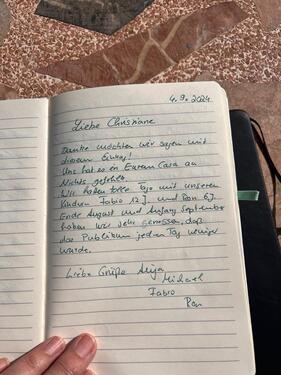 4.9.2024
Liebe Christiane
Danke möchten wir sagen mit
diesem Eintrag!
Uns hat es in Eurem Casa an
Nichts gefehlt.
Wir haben tolle Tage mit unseren
Kindern Fabio 12 J. und Ron 6 J.
Ende August und Anfang September
haben wir sehr genossen, daß
das Publikum jeden Tag weniger
wurde.
Liebe Grüße Anja
Michael
Fabio
Ron